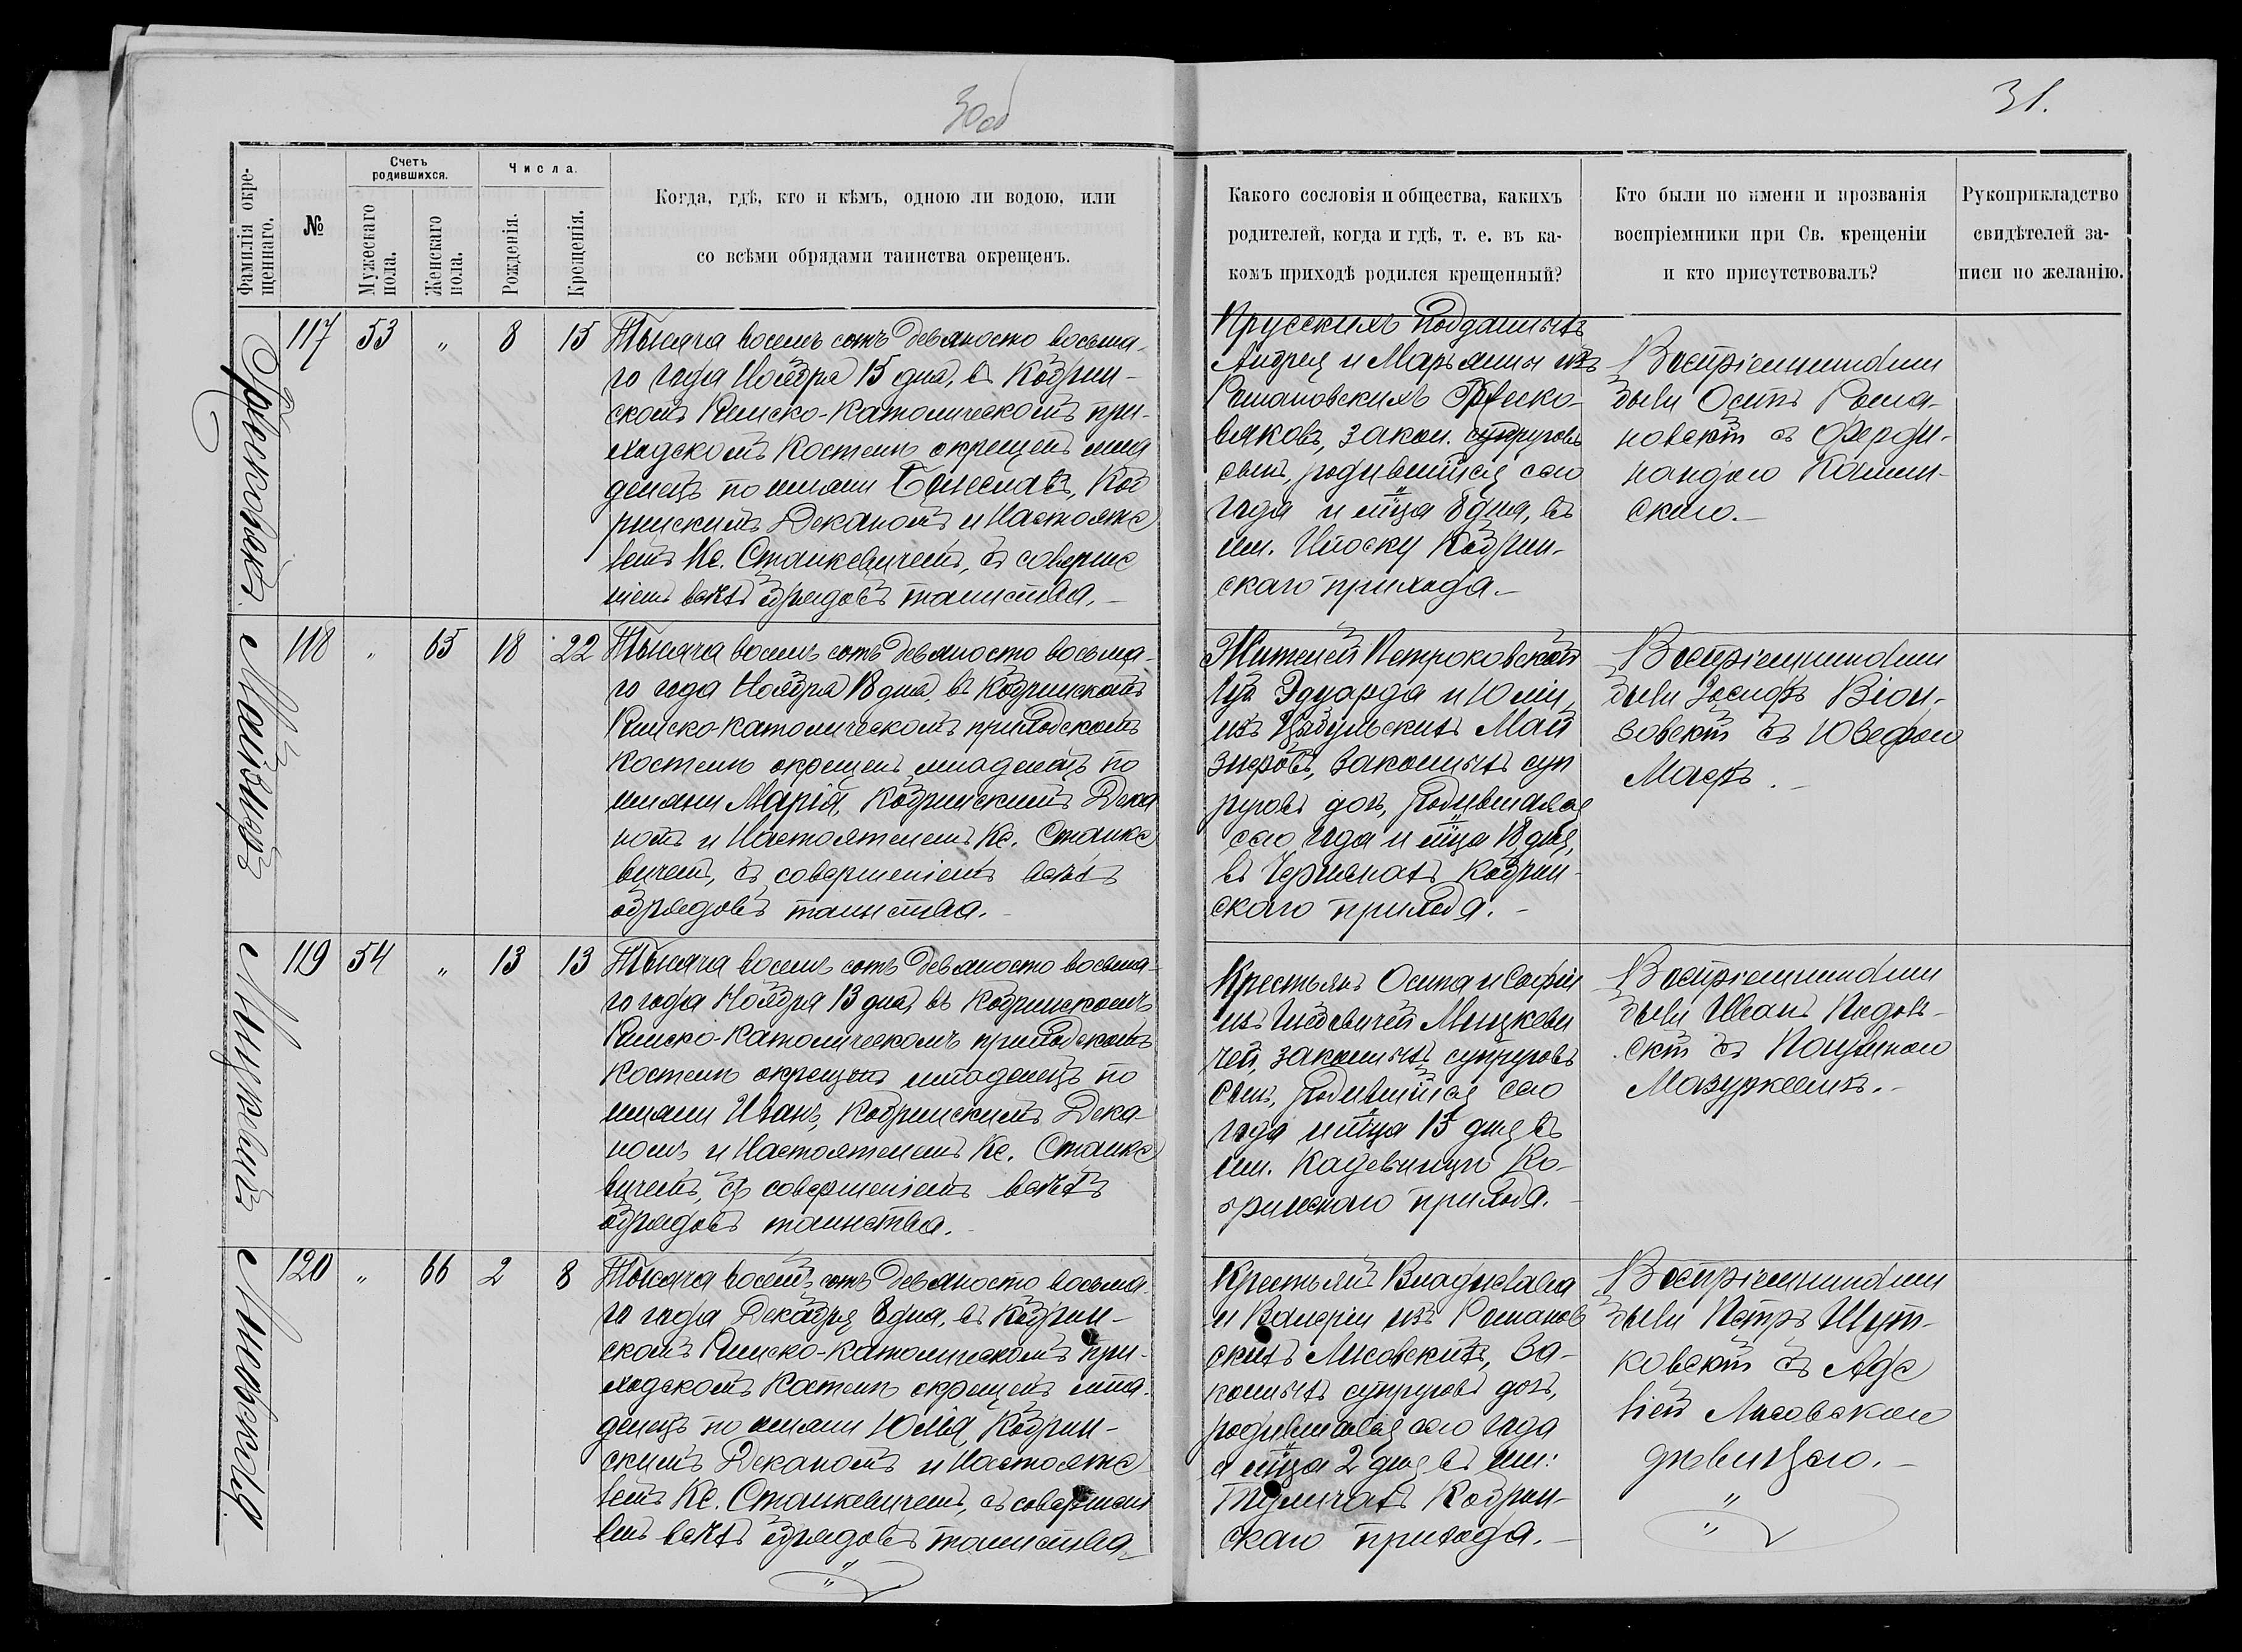 30об
31.
Фамилія окре-
щеннаго.
№
Счетъ
родившихся.
Мужескаго
пола.
Женскаго
пола.
Числа.
Рожденія.
Крещенія.
Когда, гдѣ, кто и кѣмъ, одною ли водою, или
со всѣми обрядами таинства окрещенъ.
Какого сословія и общества, какихъ
родителей, когда и гдѣ, т. е. въ ка-
комъ приходѣ родился крещенный?
Кто были по имени и прозванія
воспріемники при Св. крещеніи
и кто присутствовалъ?
Рукоприкладство
свидѣтелей за-
писи по желанію.
117 53 „ 8 15
Тысяча восемь сотъ девяносто восьма-
го года Ноября 15 дня, въ Кобрин-
скомъ Римско-Католическомъ при-
ходскомъ Костелѣ окрещенъ мла
денецъ по имени Болеславъ, Коб
ринскимъ Деканомъ и Настояте
лемъ Кс. Станкевичемъ, съ соверше
ніемъ всѣхъ обрядовъ таинства.-
Прусскихъ подданныхъ
Андрея и Марьянны изъ
Романовскихъ
закон. супруговъ
сынъ, родившійся сего
года и м-ца 8 дня, въ
им. Кобрин-
скаго прихода.-
Воспріемниками
были Осипъ Рома-
новскій съ Ферди-
нандою Камин-
скою.-
Майзнеръ
118 „ 65 18 22
Тысяча восемь сотъ девяносто восьма-
го года Ноября 18 дня, въ Кобринскомъ
Римско-Католическомъ приходскомъ
Костелѣ окрещенъ младенецъ по
имени Марія, Кобринскимъ Дека
номъ и Настоятелемъ Кс. Станке
вичемъ, съ совершеніемъ всѣхъ
обрядовъ таинства.-
Жителей Петроковской
губ. Эдуарда и Юліи,
изъ Цыбульскихъ Май
знеровъ, законныхъ суп
руговъ дочь, родившаяся
сего года и м-ца 18 дня,
въ Кобрин-
скаго прихода.-
Воспріемниками
были Іосифъ
съ Юзефою
Мицкевичъ
119 54 „ 13 13
Тысяча восемь сотъ девяносто восьма-
го года Ноября 13 дня, въ Кобринскомъ
Римско-Католическомъ приходскомъ
Костелѣ окрещенъ младенецъ по
имени Иванъ, Кобринскимъ Дека-
номъ и Настоятелемъ Кс. Станке
вичемъ, съ совершеніемъ всѣхъ
обрядовъ таинства.-
Крестьянъ Осипа и Софіи
изъ Мицкеви
чей, законныхъ супруговъ
сынъ, родившійся сего
года и м-ца 13 дня въ
им. Ко-
бринскаго прихода.-
Воспріемниками
были Иванъ
съ Паулиною
Лисовская
120 „ 66 2 8
Тысяча восемь сотъ девяносто восьма
го года Декабря 8 дня, въ Кобрин-
скомъ Римско-Католическомъ при-
ходскомъ Костелѣ окрещенъ мла-
денецъ по имени Юлія, Кобрин-
скимъ Деканомъ и Настояте
лемъ Кс. Станкевичемъ, съ совершені
емъ всѣхъ обрядовъ таинства.-
Крестьянъ Владислава
и Валеріи изъ Романов
скихъ Лисовскихъ, за-
конныхъ супруговъ дочь,
родившаяся сего года
и м-ца 2 дня въ им:
Кобрин-
скаго прихода.-
Воспріемниками
были Петръ Шут-
ковскій съ Аде
ліей Лисовскою
дѣвицею.-